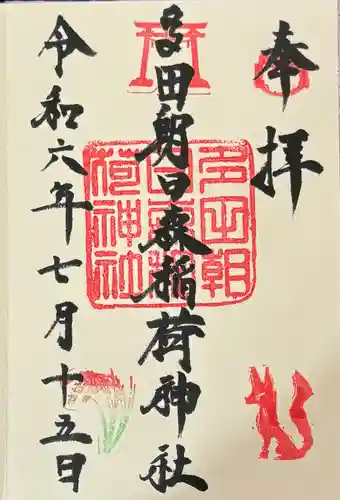 奉拝
多田朝日森稲荷神社
令和六年七月十五日
多田朝
日森稲
荷神社